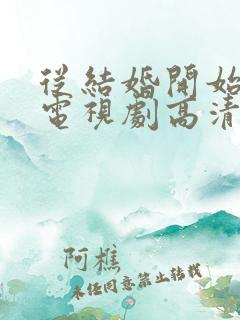 從結婚開始
電視劇高清
阿樵
未经同意禁止转载